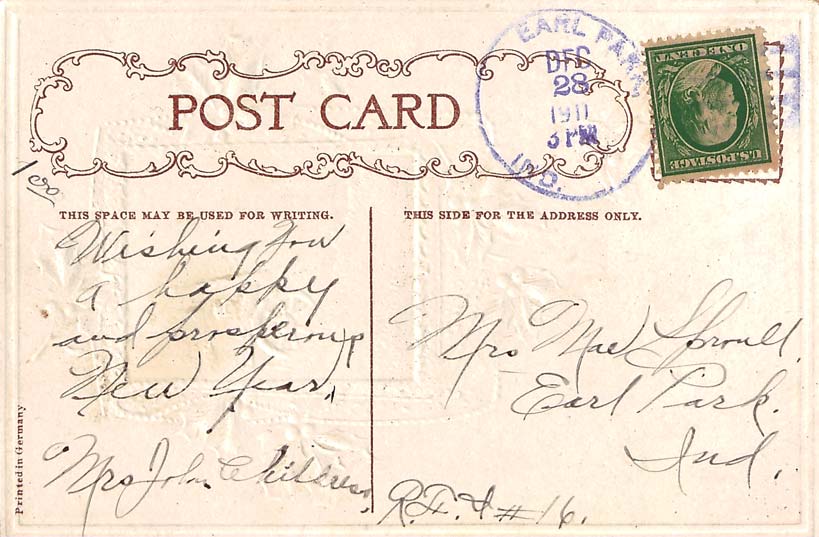 POST CARD
EARL PARK,
DEC
28
1911
3 PM
IND.
ONE CENT
U.S. POSTAGE
1 00
THIS SPACE MAY BE USED FOR WRITING.
Wishing You
a happy
and prosperous
New Year.
Mrs John
THIS SIDE FOR THE ADDRESS ONLY.
Mrs Mae Sproull
Earl Park.
Ind.
#16.
Printed in Germany